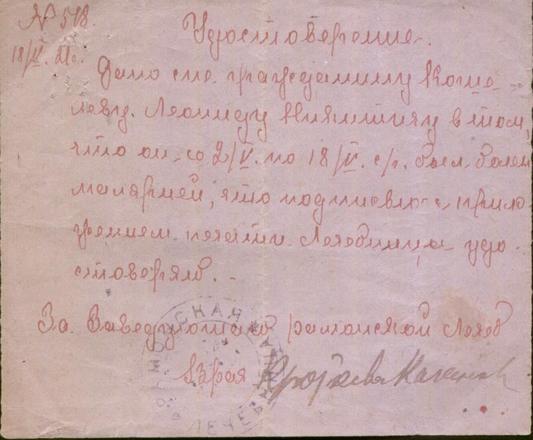 № 518
18/V. 21 г.
Удостоверение.
Дано сие гражданину Коше-
леву Леониду Никитичу в том,
что он со 2/V. по 18/V. с/г. был болен
малярией, что подписью с прило
жением печати Лечебницы удо-
стоверяю. -
За Заведующего раионской Лечеб
Врач